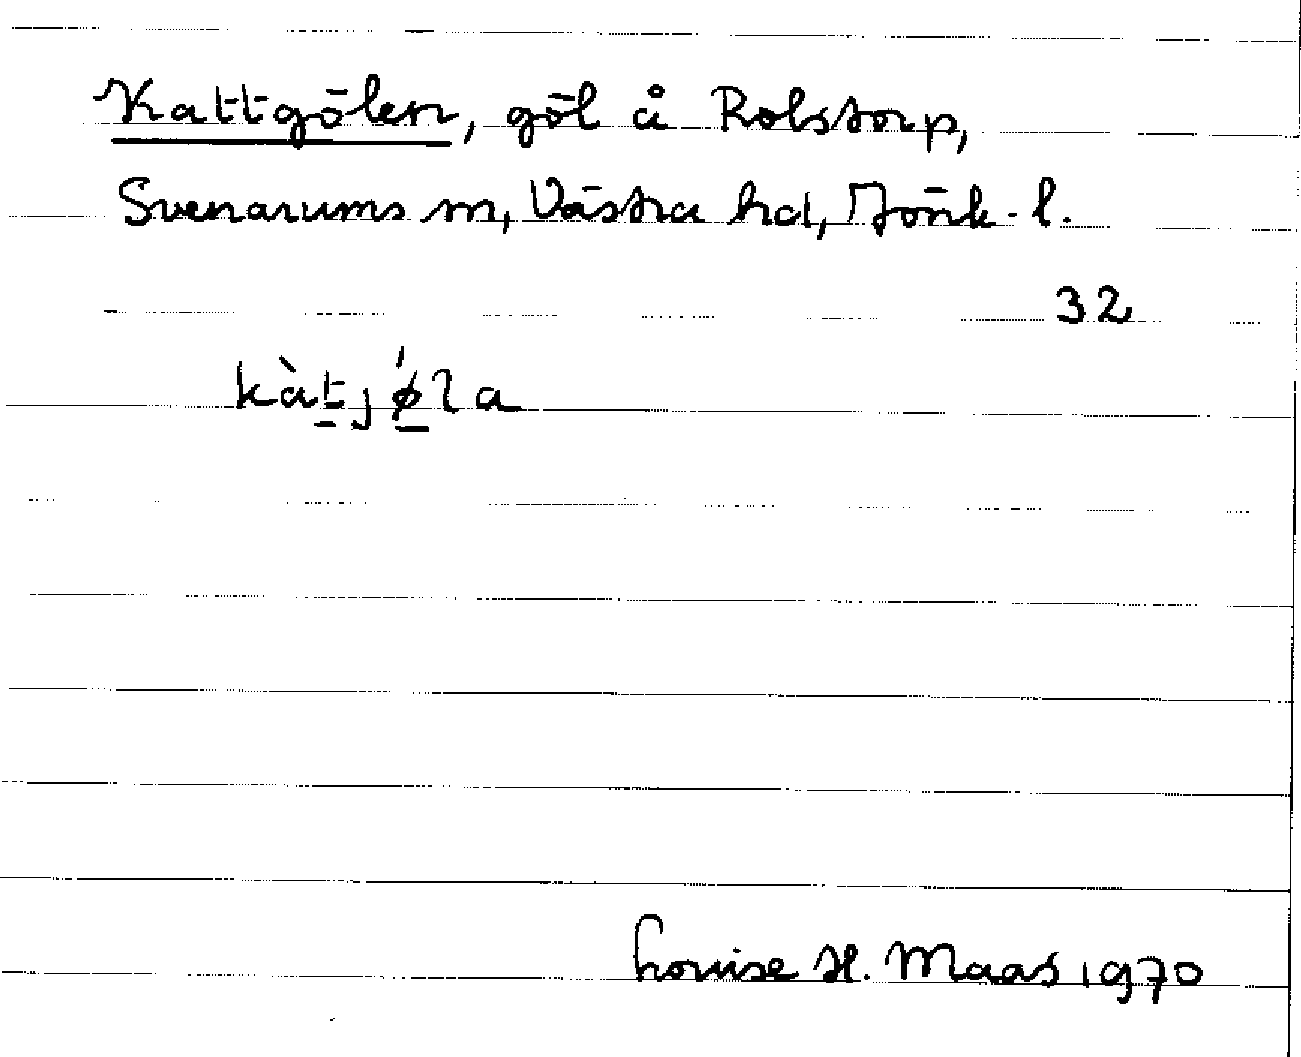 Kattgölen, göl å Rolstorp,
Svenarums sn, Västra hd, Jönk. l.
32
kàt̠jǿ̠la
Louise H. Maas 1970